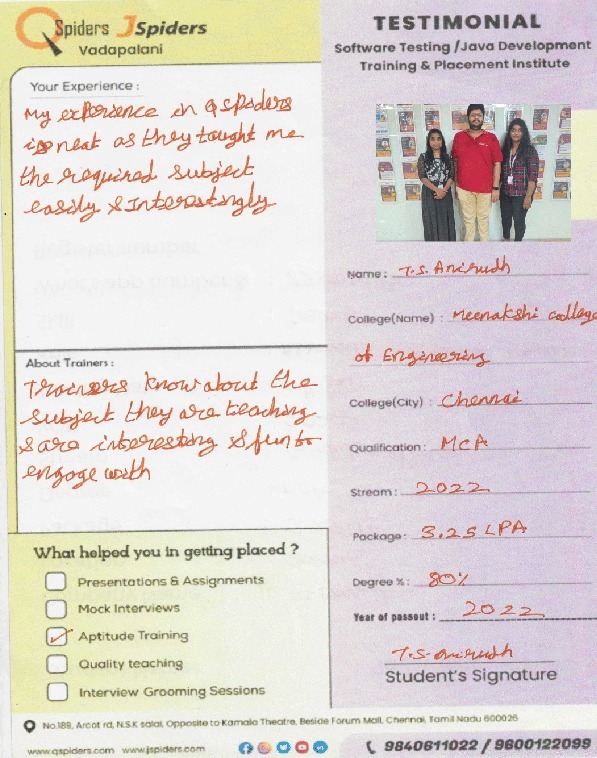 QSpiders JSpiders
Vadapalani
Your Experience :
My experience in Qspiders
is neat as they taught me
the required subject
easily & Interestingly
About Trainers :
Trainers know about the
subject they are teaching
& are interesting & fun to
engage with
What helped you in getting placed ?
Presentations & Assignments
Mock Interviews
Aptitude Training
Quality teaching
Interview Grooming Sessions
TESTIMONIAL
Software Testing /Java Development
Training & Placement Institute
Name : T.S. Anirudh
College(Name) : Meenakshi college
of Engineering
College(City) : Chennai
Qualification : MCA
Stream : 2022
Package : 3.25 LPA
Degree % : 80%
Year of passout : 2022
T.S. Anirudh
Student's Signature
No.189, Arcot rd, N.S.K salai, Opposite to Kamala Theatre, Beside Forum Mall, Chennai, Tamil Nadu 600026
www.qspiders.com www.jspiders.com
9840611022 / 9600122099